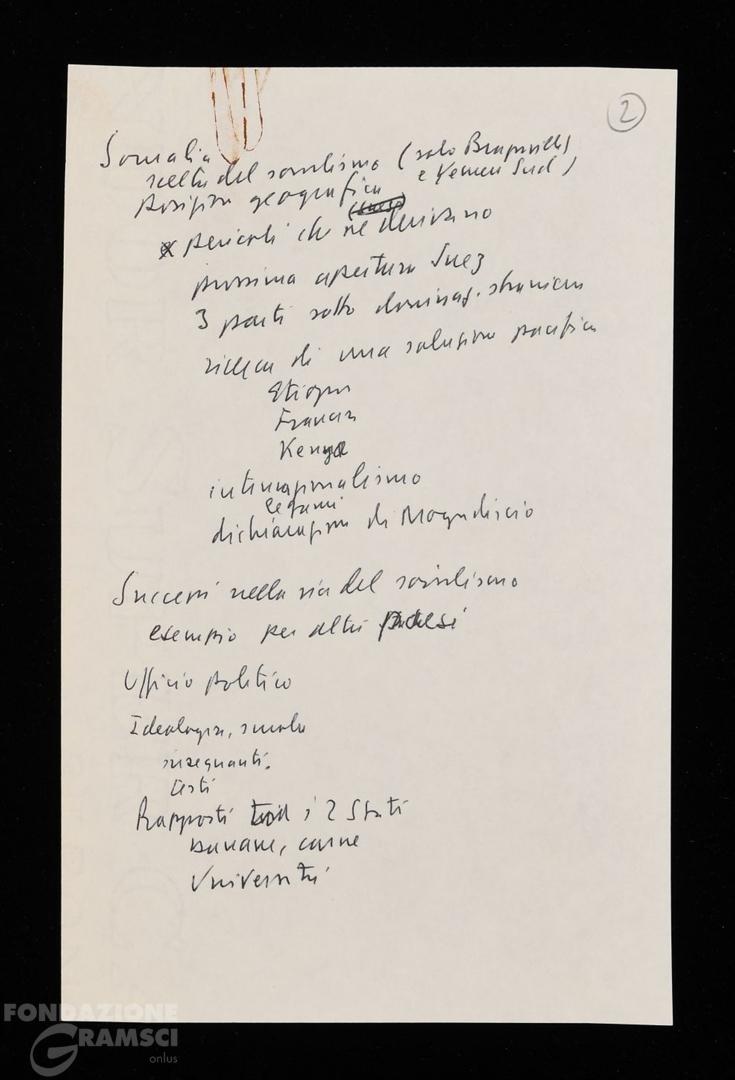 2
Somalia
scelta del socialismo (solo Brazzaville
e Yemen Sud)
posizione geografica
pericoli che ne derivano
prossima apertura Suez
3 parti sotto dominaz. straniera
ricerca di una soluzione pacifica
Etiopia
Francia
Kenya
internazionalismo
legami
dichiarazione di Mogadiscio
Successi nella via del socialismo
esempio per altri paesi
Ufficio politico
Ideologia, scuola
insegnanti.
testi
Rapporti tra i 2 Stati
banane, carne
Università
FONDAZIONE
GRAMSCI
onlus